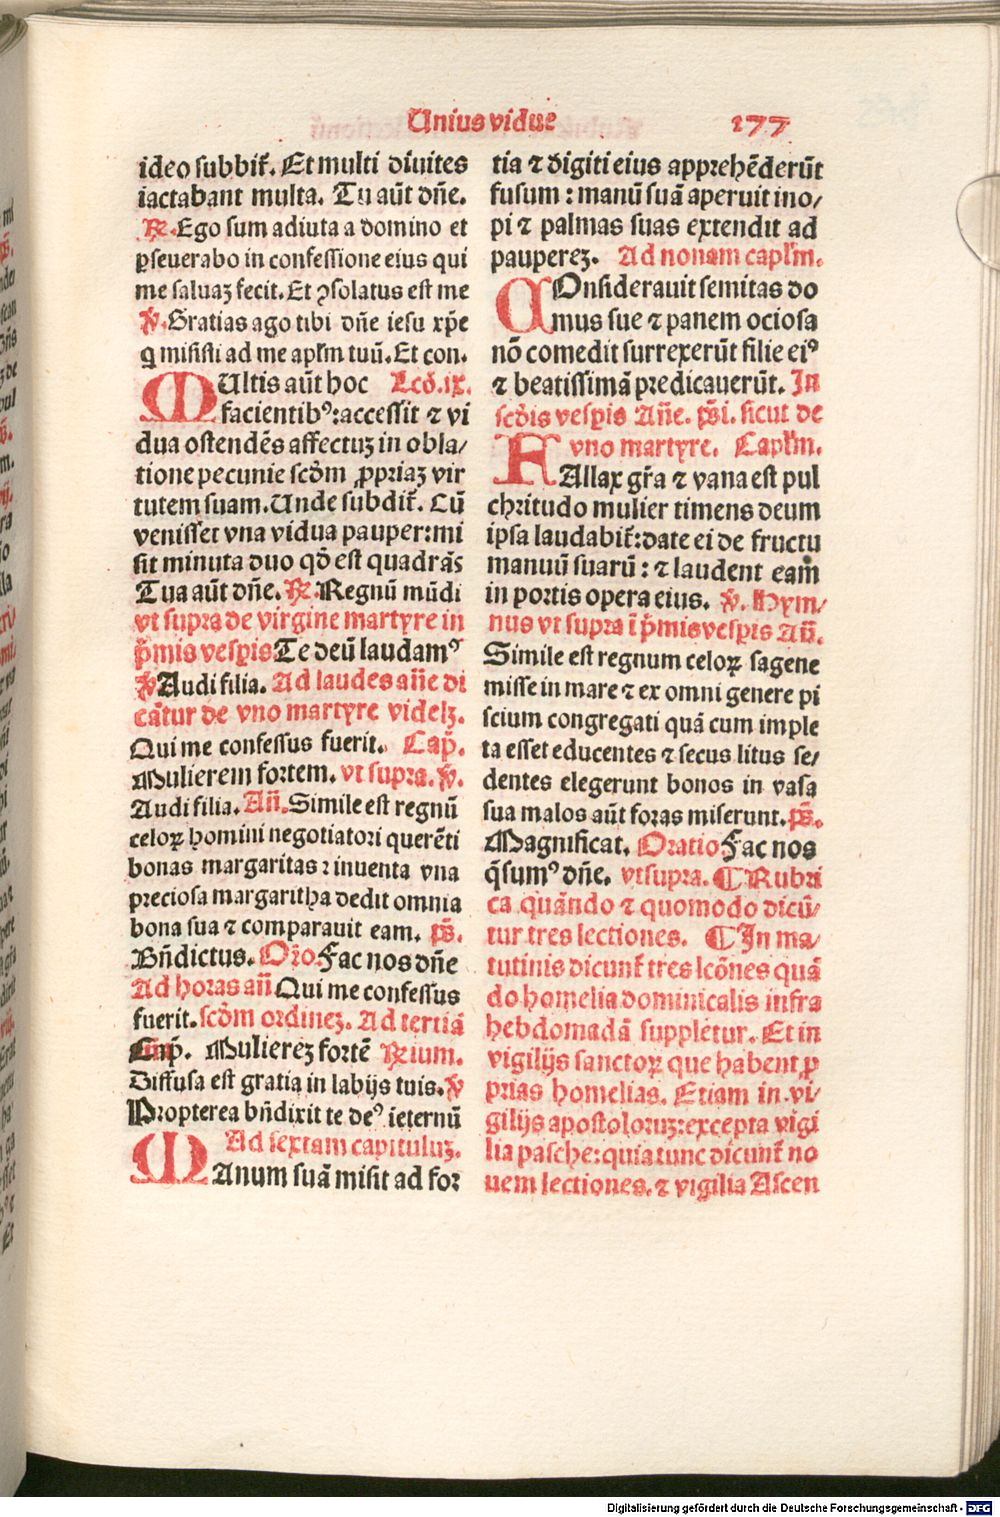 Unius vidue 177
ideo subdit̃. Et multi diuites
iactabant multa. Tu aũt dñe.
℟. Ego sum adiuta a domino et
ꝑseuerabo in confessione eius qui
me saluaꝫ fecit. Et ꝯsolatus est me
℣. Gratias ago tibi dñe iesu xp̃e
q misisti ad me apl̃m tuũ. Et con.
MUltis aũt hoc Lcõ. ix.
facientibꝰ: accessit ⁊ vi
dua ostendẽs affectuꝫ in obla/
tione pecunie scðm ꝓpriaꝫ vir
tutem suam. Unde subdit̃. Cũ
venisset vna vidua pauper: mi
sit minuta duo qð est quadrãs
Tua aũt dñe. ℟. Regnũ mũdi
vt supra de virgine martyre in
p̃mis vesꝑis Te deũ laudamꝰ
℣ Audi filia. Ad laudes añe di
cãtur de vno martyre videlꝫ.
Qui me confessus fuerit. Cap̃.
Mulierem fortem. vt supra. ℣.
Audi filia. Añ. Simile est regnũ
celoꝝ homini negotiatori querẽti
bonas margaritas: inuenta vna
preciosa margaritha dedit omnia
bona sua ⁊ comparauit eam. ps̃.
Bñdictus. Or̃o Fac nos dñe
Ad horas añ Qui me confessus
fuerit. scðm ordineꝫ. Ad tertiã
Cap̃. Muliereꝫ fortẽ ℟ium.
Diffusa est gratia in labijs tuis. ℣
Propterea bñdixit te deꝰ ieternũ
Ad sextam capituluꝫ.
MAnum suã misit ad for
tia ⁊ digiti eius apprehẽderũt
fusum: manũ suã aperuit ino/
pi ⁊ palmas suas extendit ad
paupereꝫ. Ad nonam capl̃m.
COnsiderauit semitas do
mus sue ⁊ panem ociosa
nõ comedit surrexerũt filie eiꝰ
⁊ beatissimã predicauerũt. In
scðis vesꝑis Añe. ps̃i. sicut de
vno martyre. Capl̃m.
FAllax gr̃a ⁊ vana est pul
chritudo mulier timens deum
ipsa laudabit̃: date ei de fructu
manuũ suarũ: ⁊ laudent eam
in portis opera eius. ℣. Hym/
nus vt supra ĩ p̃mis vesꝑis Añ.
Simile est regnum celoꝝ sagene
misse in mare ⁊ ex omni genere pi
scium congregati quã cum imple
ta esset educentes ⁊ secus litus se/
dentes elegerunt bonos in vasa
sua malos aũt foras miserunt. ps̃.
Magnificat. Oratio Fac nos
q̃sumꝰ dñe. vt supra. ¶ Rubri
ca quãndo ⁊ quomodo dicũ/
tur tres lectiones. ¶ In ma/
tutinis dicunt̃ tres lcõnes quã
do homelia dominicalis infra
hebdomadã suppletur. Et in
vigilijs sanctoꝝ que habent ꝓ
prias homelias. Etiam in vi/
gilijs apostoloruꝫ: excepta vigi
lia pasche: quia tunc dicunt̃ no
uem lectiones. ⁊ vigilia Ascen
Digitalisierung gefördert durch die Deutsche Forschungsgemeinschaft - DFG